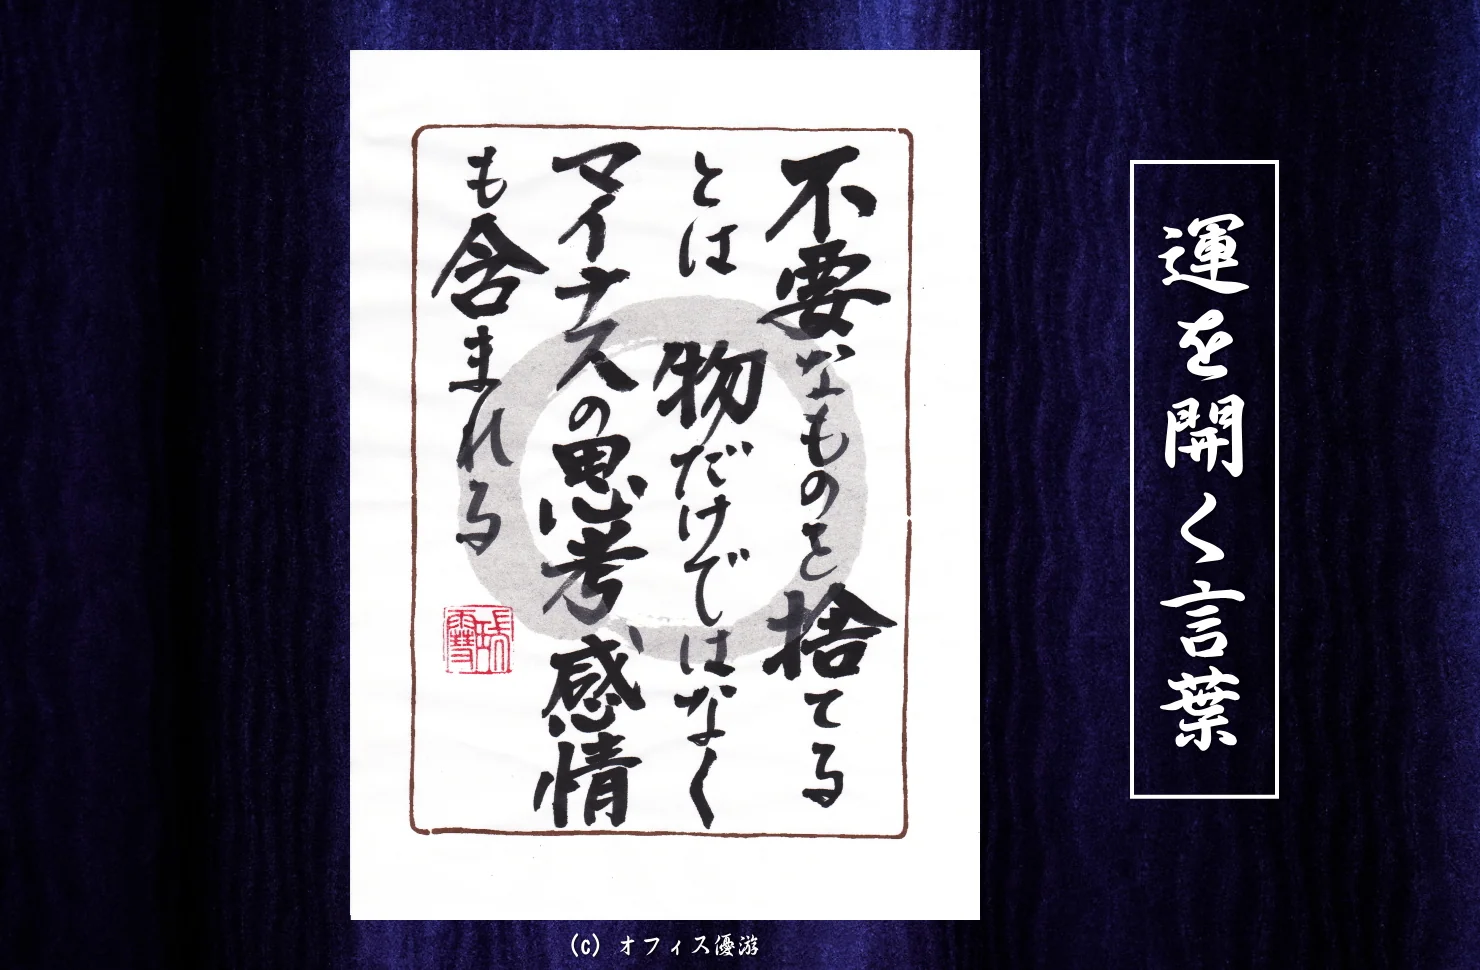 運を開く言葉
不要なものを捨てる
とは 物だけではなく
マイナスの思考感情
も含まれる
(c) オフィス優游